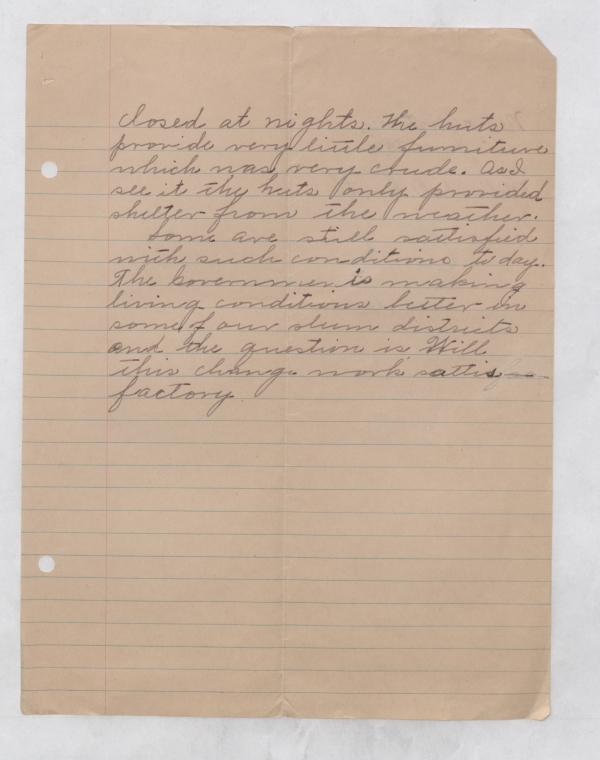 closed at nights. The huts
provide very little furniture
which was very crude. As I
see it the huts only provided
shelter from the weather.
Some are still sattisfied
with such conditions today.
The Govermner is making
living conditions better in
some of our slum districts
and the question is Will
this change work sattis-
factory.